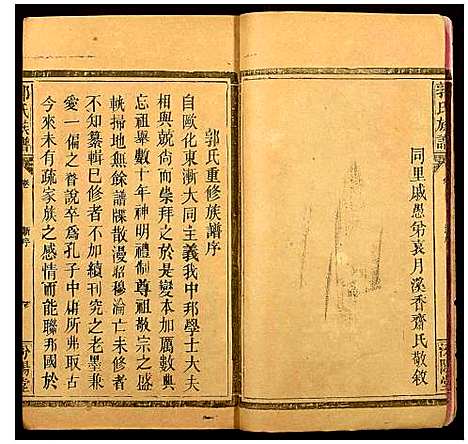 郭氏族譜
同里戚愚弟袁月溪香齋氏敬敘
汾陽堂
郭氏重修族譜序
自歐化東漸大同主義我中邦學士大夫
相與競尚而崇拜之於是變本加厲數典
忘祖舉數十年神明禮制尊祖敬宗之盛
軌掃地無餘譜牒散漫昭穆淪亡未修者
不知纂輯已修者不加續刊究之老墨兼
愛一偏之眘說卒為孔子中庸所弗取古
今來未有疏家族之感情而能聯邦國於
郭氏族譜
卷
新序
汾陽堂